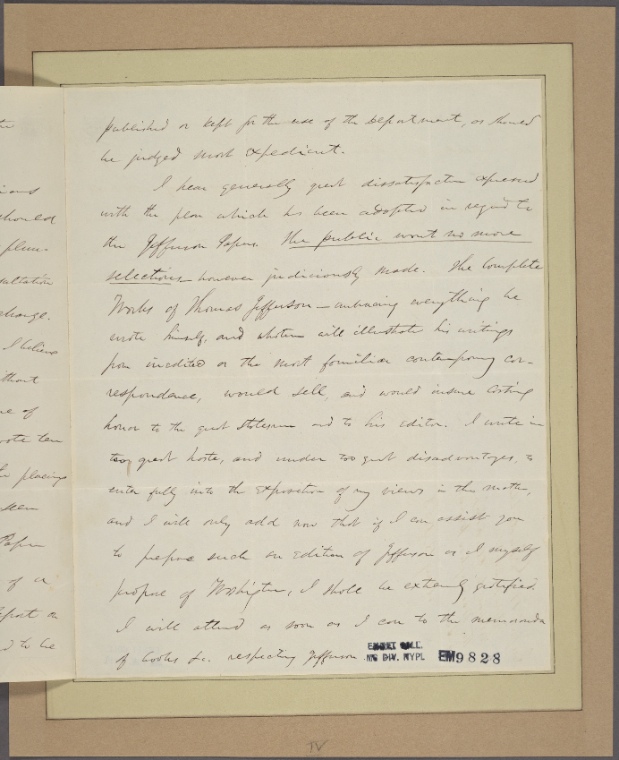 published or kept for the use of the Department, as should
be judged most expedient.
I hear generally great dissatisfaction expressed
with the plan which has been adopted in regard to
the Jefferson Papers. The public want no more
selections however judiciously made. The Complete
Works of Thomas Jefferson — embracing everything he
wrote himself, and whatever will illustrate his writings
from inedited or the most familiar contemporary cor-
respondence, would sell, and would insure lasting
honor to the great Statesman and to his editor. I write in
too great haste, and under too great disadvantages, to
enter fully into the exposition of my views in the matter,
and I will only add now that if I can assist you
to prepare such an edition of Jefferson as I myself
propose of Washington, I shall be extremely gratified.
I will attend as soon as I can to the memoranda
of books &c. respecting Jefferson
EMMET COLL.
MS DIV. NYPL
EM9828
should
plea-
sultation
change.
I believe
thout
ne of
wrote ten
placing
seem
Paper
of a
eport on
d to be
IV